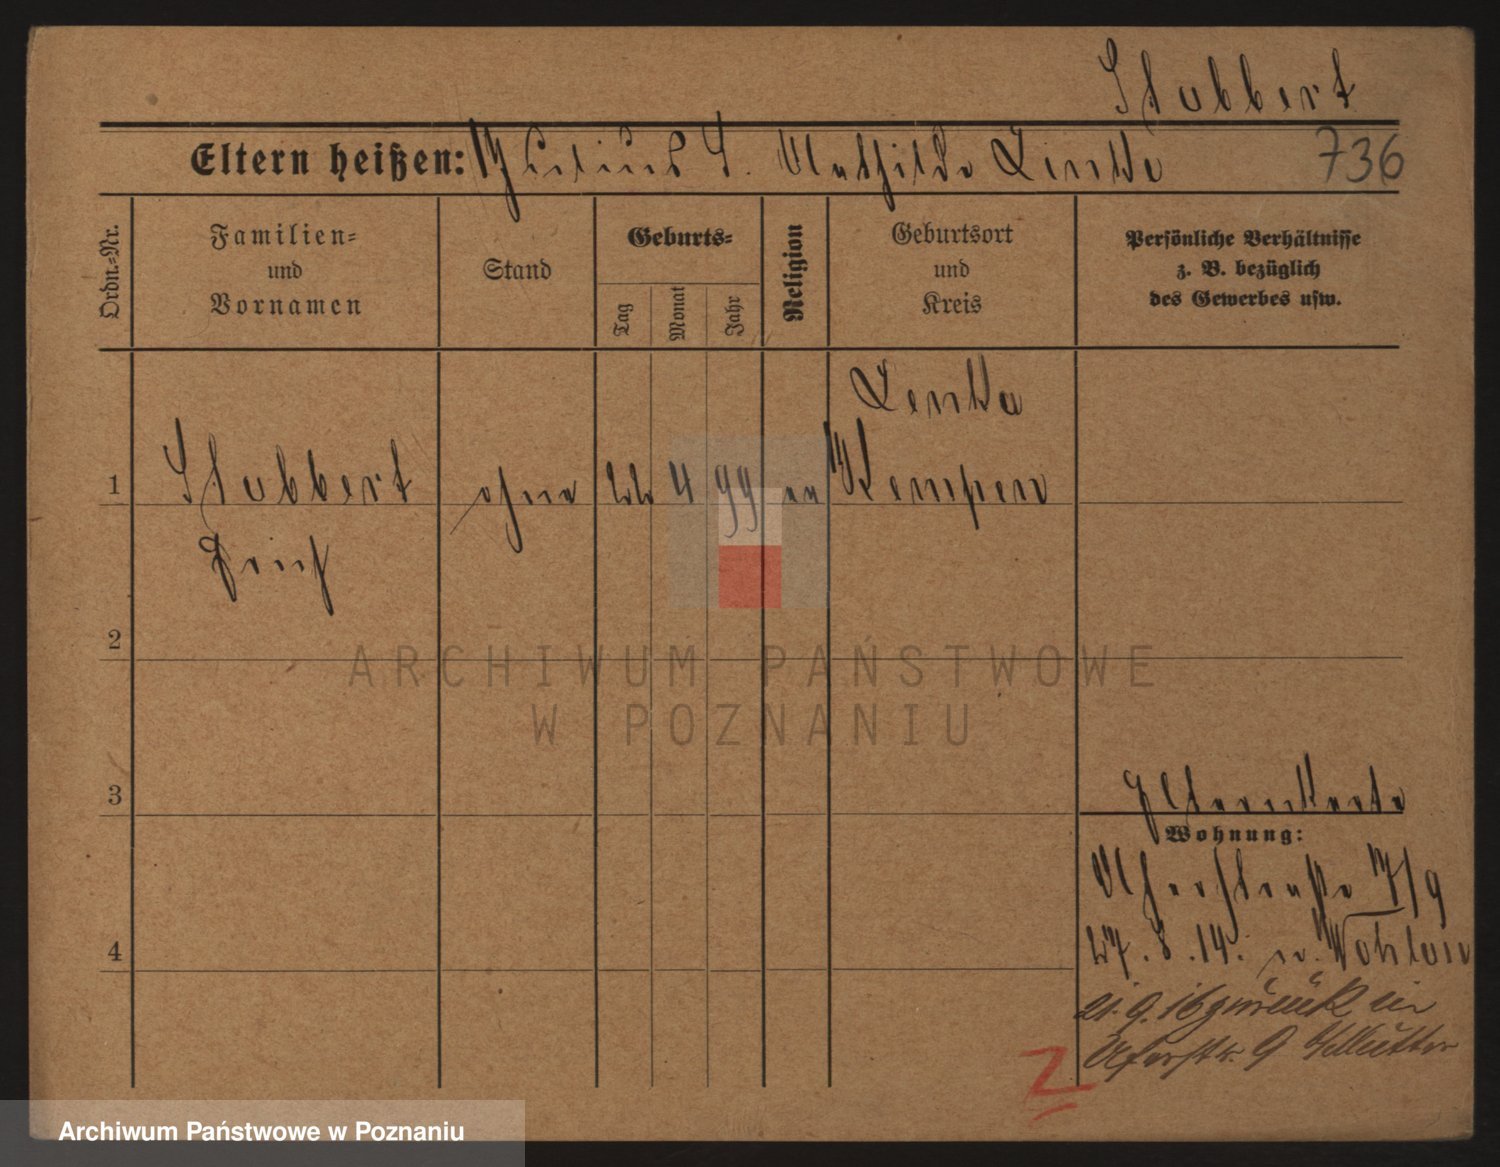 Stobbert
Eltern heißen: Julius S. Mathilde Lenka
736
Ordn.=Nr.
Familien=
und
Vornamen
Stand
Geburts=
Tag
Monat
Jahr
Religion
Geburtsort
und
Kreis
Persönliche Verhältnisse
z. B. bezüglich
des Gewerbes usw.
Lenka
1 Stobbert ohne 22 4 99 ev Kempen
2
3
Elternkarte
Wohnung:
Uferstraße 7/9
4
27. 8. 14. n.
21. 9. 16 zurück in
Uferstr. 9 Mutter
Z
ARCHIWUM PAŃSTWOWE
W POZNANIU
Archiwum Państwowe w Poznaniu